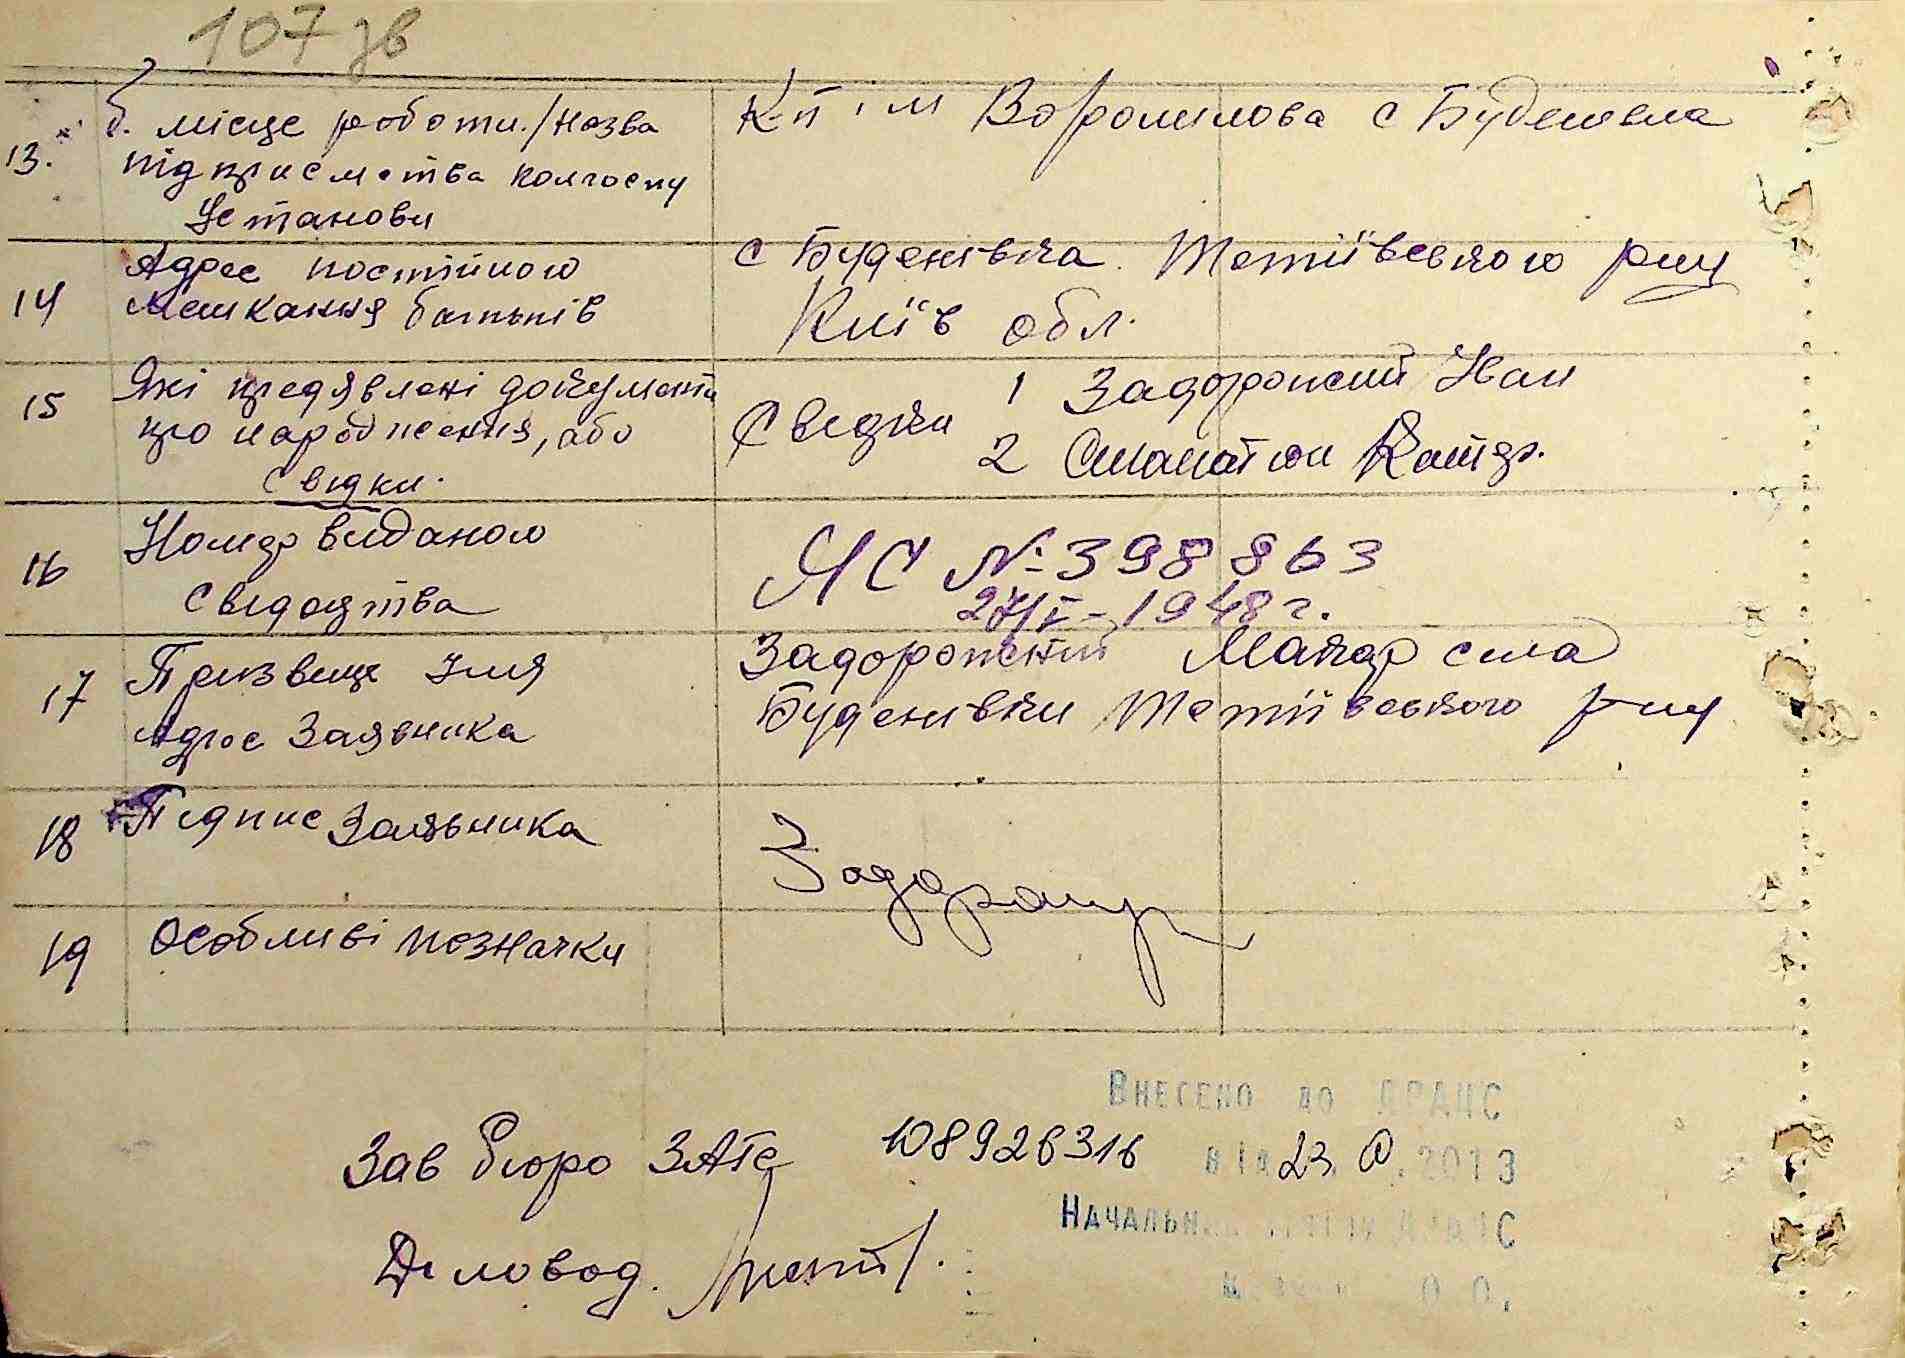 107 зв
13. б. місце роботи. /назва
підприємства колгоспу
Установи
К-п ім Ворошилова с Буденівка
14 Адрес постійного
мешкання батьків
с Буденівка Тетіївського р-ну
Київ обл.
15 Які предявлені документи
про народження, або
свідки.
Свідки 1 Задорожний Іван
2 Кат
16 Номер виданого
свідоцтва
ЯС № 398863
27/V-1948 г.
17 Призвище Імя
Адрес Заявника
Задорожний Макар села
Буденівки Тетіївського р-ну
18 Підпис Заявника
19 Особливі позначки
Внесено до ДРАЦС
Зав бюро ЗАГС 108926316 від 23. .2013
Начальник ДРАЦС
Діловод.
О О.